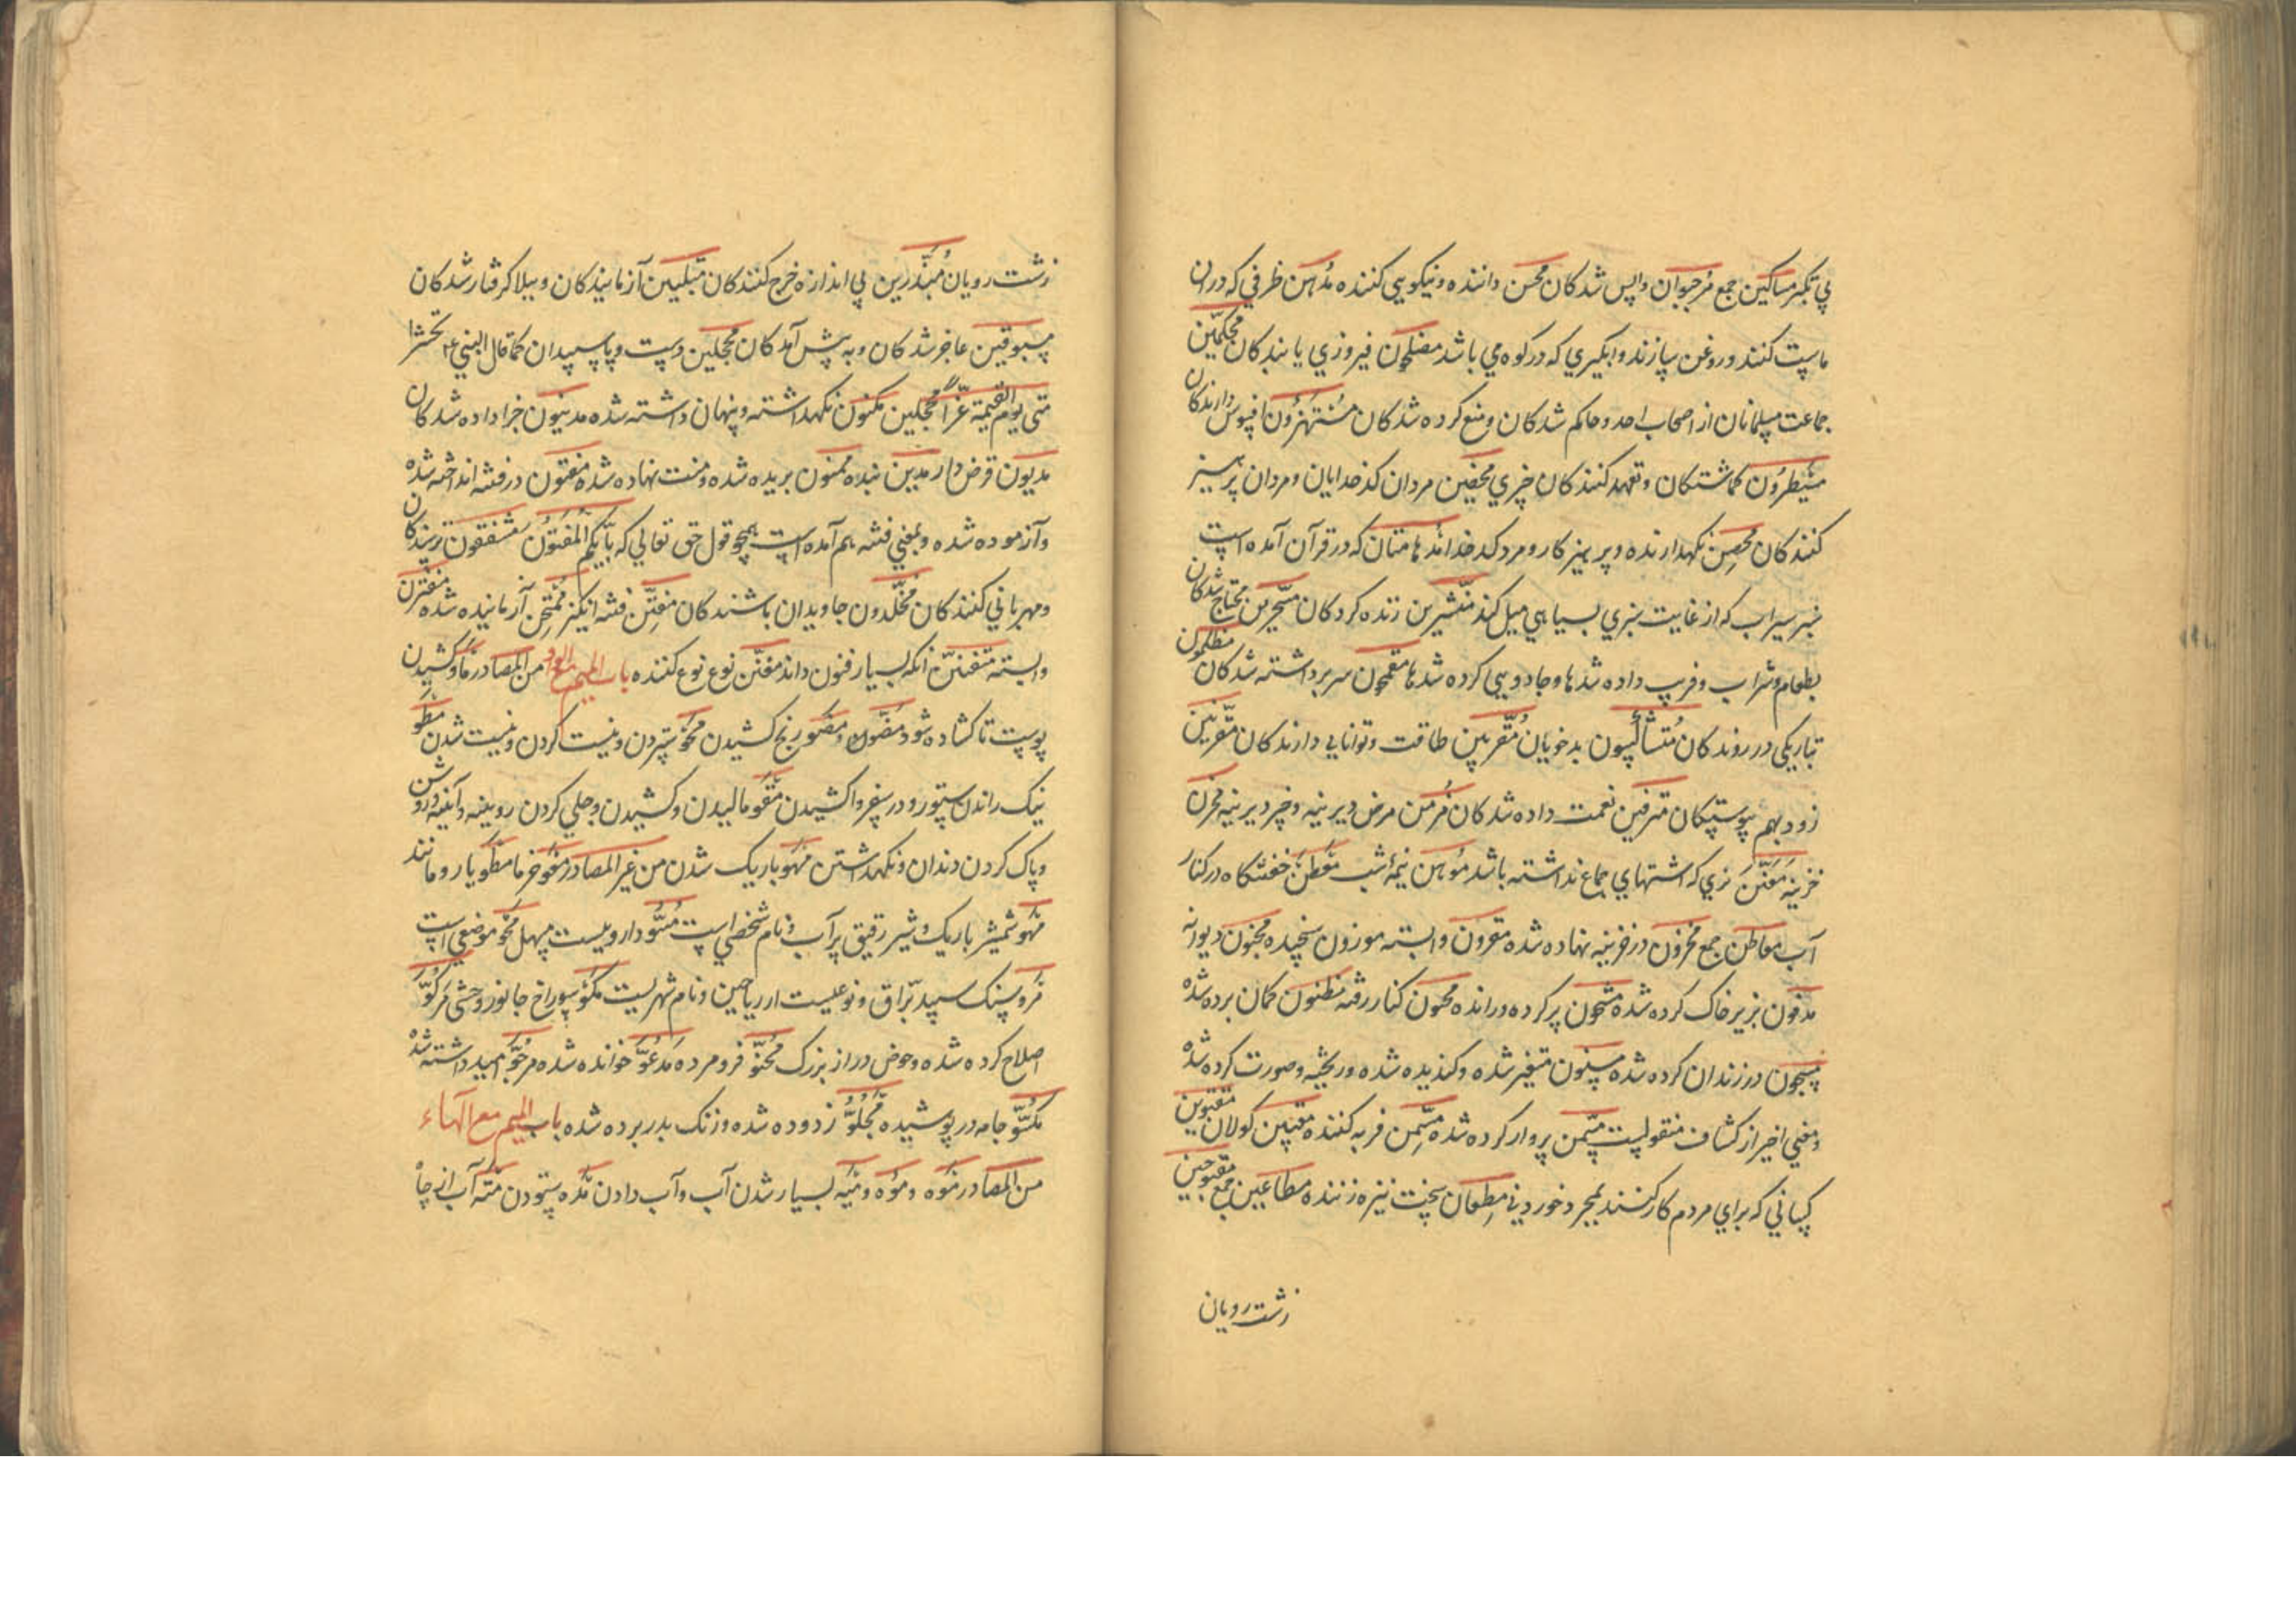 پی تکبر مساکین جمع مرجوان واپس شدکان محسن داننده و نیکویی کننده مدهن ظرفی که دران
ماست کنند و روغن سازند و ابکیری که در کوه می باشد مفلحون فیروزی یابندکان محکمین
جماعت مسلمانان از اصحاب احد و حاکم شدکان و منع کرده شدکان مستهزؤن افسوس دارندکان
مسیطرون کماشتکان و تعهد کنندکان چیزی محصنین مردان کدخدایان و مردان پرهیز
کنندکان محصن نکهدارنده و پرهیزکار و مرد کدخدا مدهامتان که در قرآن آمده است
سبز سیراب که از غایت سبزی بسیاهی میل کند منشرین زنده کردکان مسحرین محتاج شدکان
بطعام و شراب و فریب داده شدها و جادویی کرده شدها مقمحون سر برداشته شدکان مظلمون
بتاریکی در روندکان متشاکسون بدخویان مقربین طاقت و توانایی دارندکان مقرنین
زود بهم پیوستکان مترفین نعمت داده شدکان مزمن مرض دیرینه و چیز دیرینه مخزن
خزینه نری که اشتهای جماع نداشته باشد موهن نیمۀ شب معطن خفتنکاه در کنار
آب معاطن جمع مخزون در خزینه نهاده شده مقرون وابسته موزون سنجیده مجنون دیوانه
مدفون بزیر خاک کرده شده مشحون پر کرده و رانده کنار رفته مظنون کمان برده شده
مسجون در زندان کرده شده مسنون متغیر شده و کندیده شده و ریخته و صورت کرده شده
و معنی اخیر از کشاف منقولست مسمن پروار کرده شده مسمن فربه کننده کولان مقتوین
کسانی که برای مردم کار کنند بمجرد خوردنی مطعان سخت نیزه زننده مطاعین جمع مقبوحین
زشت رویان
زشت رویان مبذرین بی اندازه خرج کنندکان مبتلین آزمایندکان و ببلا کرفتار شدکان
مسبوقین عاجز شدکان و به پیش آمدکان محجلین دست و پا سپیدان کما قال النبی ع م تحشر ا
متی یوم القیمة غرا محجلین مکنون نکهداشته و پنهان داشته شده مدینون جزا داده شدکان
مدیون قرض دار مدین بنده ممنون بریده شده و منت نهاده شده مفتون در فتنه انداخته شده
و آزموده شده و بمعنی فتنه هم آمده است همچو قول حق تعالی که بأیکم المفتون مشفقون ترسندکان
و مهربانی کنندکان مخلدون جاویدان باشندکان مفتن فتنه انکیز ممتحن آزمانیده شده مقترن
وابسته متفنن آنکه بسیار فنون داند مفنن نوع نوع کننده باب المیم مع الواو من المصادر مأو کشیدن
پوست تا کشاده شود رنج کشیدن محو ستردن و نیست کردن و نیست شدن مطو
نیک راندن ستور و در سفر واکشیدن مقو مالیدن و کشیدن و جلی کردن رویینه و آینه و روشن
و پاک کردن دندان و نکهداشتن مهو باریک شدن من غیر المصادر معو خرما مطو یار و مانند
مهو شمشیر باریک و شیر رقیق پر آب و نام شخصی است مشو داروییست مسهل محو موضعی است
مرو سنک سپید براق و نوعیست از ریاحین و نام شهریست مکو سوراخ جانور وحشی مرکو
اصلاح کرده شده و حوض دراز بزرک محنو فرومرده مدعو خوانده شده مرجو امید داشته شده
مکسو جامه در پوشیده مجلو زدوده شده و زنک بدر برده شده باب المیم مع الهاء
من المصادر موه و موه و میه بسیار شدن آب و آب دادن مده ستودن مته آب از چاه